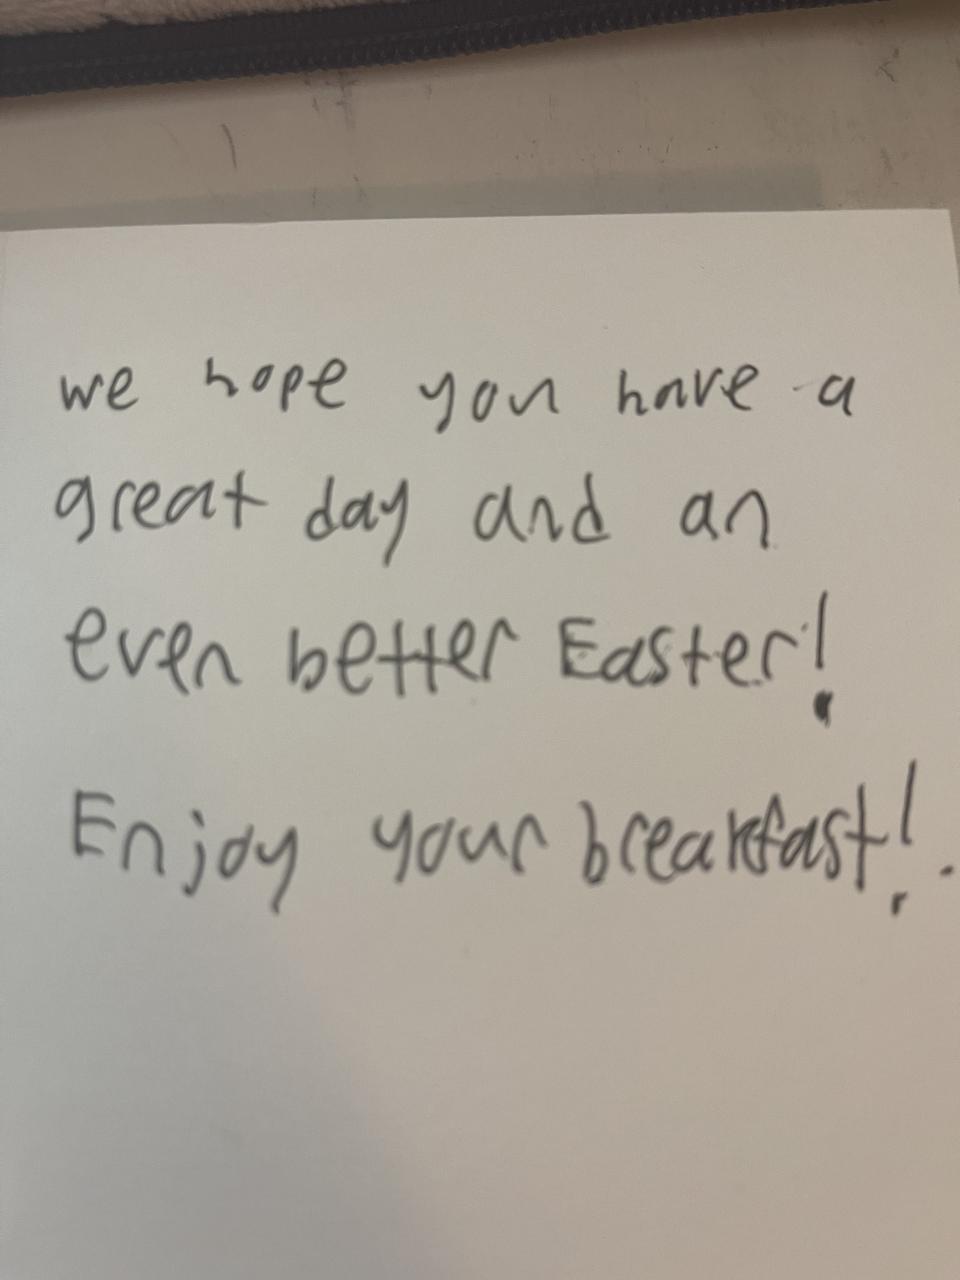 we hope you have a
great day and an
even better Easter!
Enjoy your breakfast!.